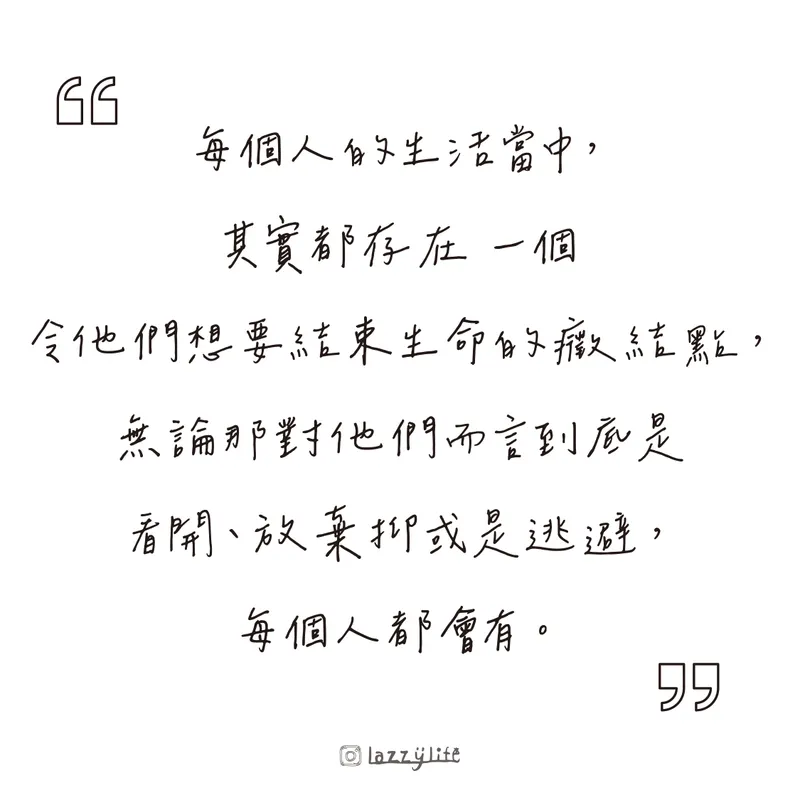 每個人的生活當中，
其實都存在一個
令他們想要結束生命的癥結點，
無論那對他們而言到底是
看開、放棄抑或是逃避，
每個人都會有。
lazzylife